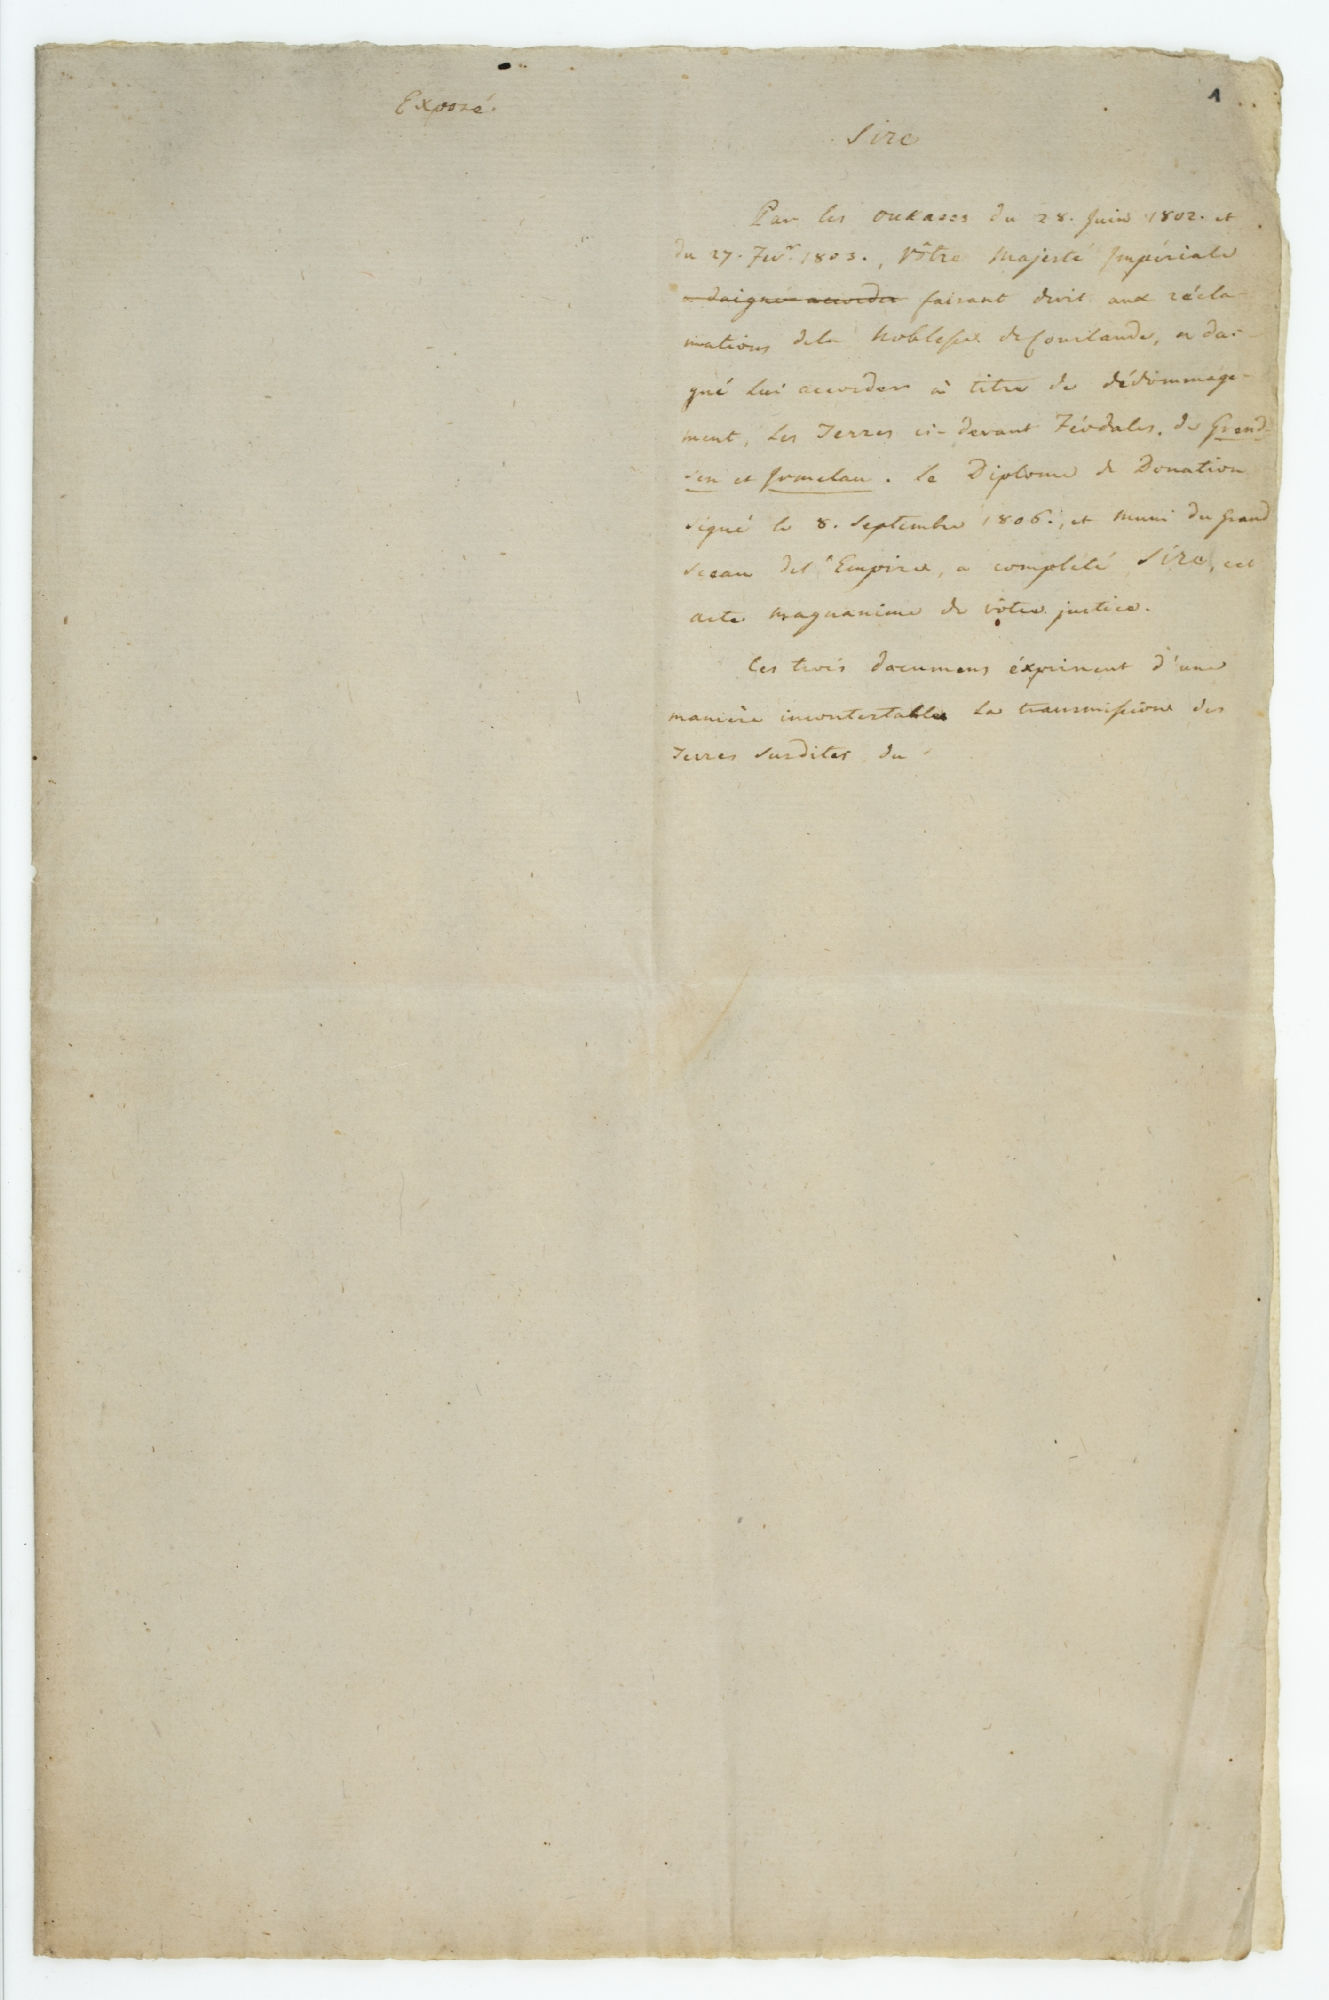 Exposé.
1
Sire
Par les oukases du 28. Juin 1802. et
du 27. Fevr. 1803., Vôtre Majesté Impériale
a daigné accorder faisant droit aux récla-
mations dela Noblesse de Courlande, a dai-
gné lui accorder à titre de dédommage-
ment, les Terres ci-devant Féodales, de Grend-
sen et Irmelau. Le Diplome de Donation
signé le 8. Septembre 1806., et muni du grand
sceau del'Empire, a complété Sire, cet
acte magnanime de vôtre justice.
Ces trois documens éxpriment d'une
manière incontestable la transmission des
Terres susdites du